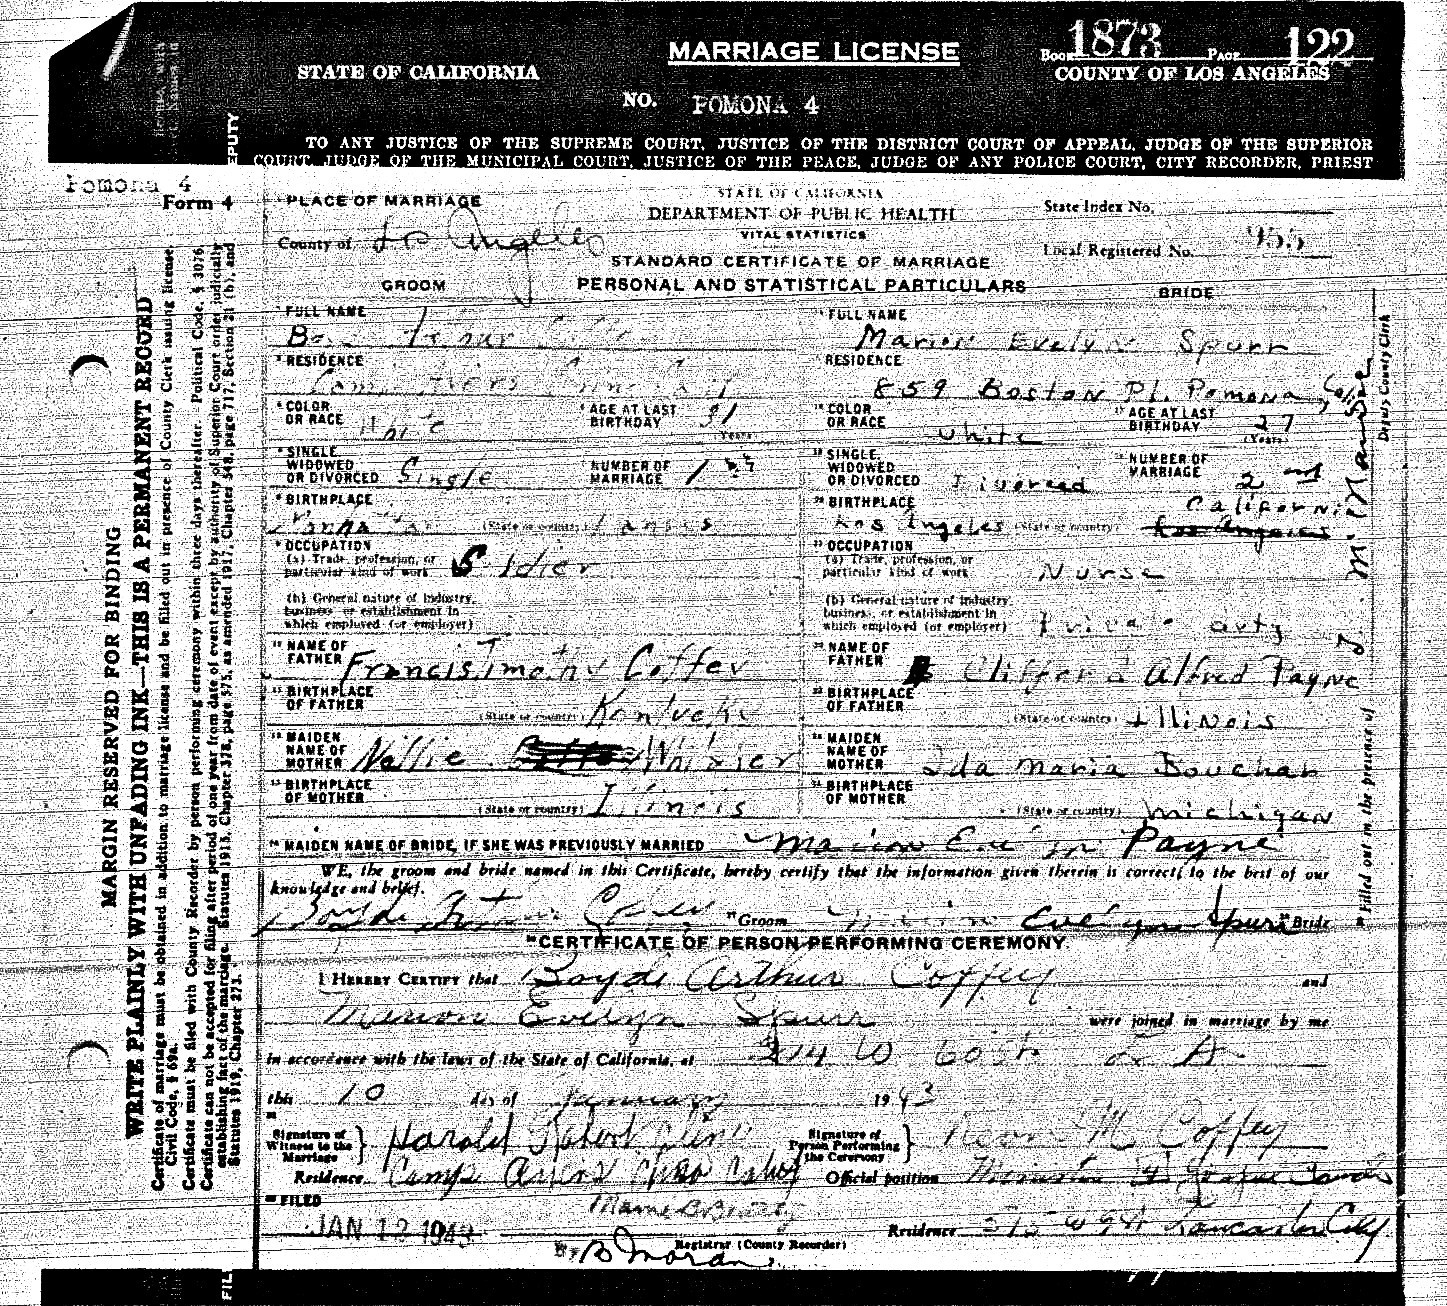 MARRIAGE LICENSE
BOOK 1873 PAGE 122
STATE OF CALIFORNIA
COUNTY OF LOS ANGELES
NO. POMONA 4
TO ANY JUSTICE OF THE SUPREME COURT, JUSTICE OF THE DISTRICT COURT OF APPEAL, JUDGE OF THE SUPERIOR
COURT, JUDGE OF THE MUNICIPAL COURT, JUSTICE OF THE PEACE, JUDGE OF ANY POLICE COURT, CITY RECORDER, PRIEST
EPUTY
Pomona 4
Form 4
MARGIN RESERVED FOR BINDING
WRITE PLAINLY WITH UNFADING INK—THIS IS A PERMANENT RECORD
Certificate of marriage must be obtained in addition to marriage license and be filled out in presence of County Clerk issuing license.
Civil Code, § 69a.
Certificate must be filed with County Recorder by person performing ceremony within three days thereafter. Political Code, § 3076.
Certificate can not be accepted for filing after period of one year from date of event except by authority of Superior Court order judicially
establishing fact of the marriage. Statutes 1915, Chapter 378, page 575, as amended 1917, Chapter 548, page 717, Section 21 (b), and
Statutes 1919, Chapter 273.
PLACE OF MARRIAGE
County of Los Angeles
STATE OF CALIFORNIA
DEPARTMENT OF PUBLIC HEALTH
VITAL STATISTICS
STANDARD CERTIFICATE OF MARRIAGE
State Index No.
Local Registered No. 955
GROOM
PERSONAL AND STATISTICAL PARTICULARS
BRIDE
FULL NAME
FULL NAME Marion Evelyn Spurr
RESIDENCE
RESIDENCE 859 Boston Pl. Pomona, Calif
COLOR OR RACE White
AGE AT LAST BIRTHDAY 31 (Years)
COLOR OR RACE white
AGE AT LAST BIRTHDAY 27 (Years)
SINGLE, WIDOWED OR DIVORCED Single
NUMBER OF MARRIAGE 1st
SINGLE, WIDOWED OR DIVORCED Divorced
NUMBER OF MARRIAGE 2nd
BIRTHPLACE (State or country) Kansas
BIRTHPLACE Los Angeles (State or country) California
Los Angeles
OCCUPATION
(a) Trade, profession, or particular kind of work Soldier
OCCUPATION
(a) Trade, profession, or particular kind of work Nurse
(b) General nature of industry, business, or establishment in which employed (or employer)
(b) General nature of industry, business, or establishment in which employed (or employer) Private duty
NAME OF FATHER Francis Timothy Coffey
NAME OF FATHER Clifford Alfred Payne
BIRTHPLACE OF FATHER (State or country) Kentucky
BIRTHPLACE OF FATHER (State or country) Illinois
MAIDEN NAME OF MOTHER Nellie
MAIDEN NAME OF MOTHER Ida Maria Bouchar
BIRTHPLACE OF MOTHER (State or country) Illinois
BIRTHPLACE OF MOTHER (State or country) Michigan
MAIDEN NAME OF BRIDE, IF SHE WAS PREVIOUSLY MARRIED Marion Evelyn Payne
WE, the groom and bride named in this Certificate, hereby certify that the information given therein is correct, to the best of our
knowledge and belief.
Boyde Arthur Coffey Groom Marion Evelyn Spurr Bride
Filled out in the presence of
Deputy County Clerk
CERTIFICATE OF PERSON PERFORMING CEREMONY
I HEREBY CERTIFY that Boyde Arthur Coffey and
Marion Evelyn Spurr were joined in marriage by me
in accordance with the laws of the State of California, at 314 W 60th L A
this 10 day of January 1943
Signature of Witness to the Marriage Harold Robert
Signature of Person Performing the Ceremony M Coffey
Residence Camp
Official position Minister
FILED
JAN 12 1943
Mame B Beatty
Registrar (County Recorder)
By B Moran
Residence Lancaster
FIL